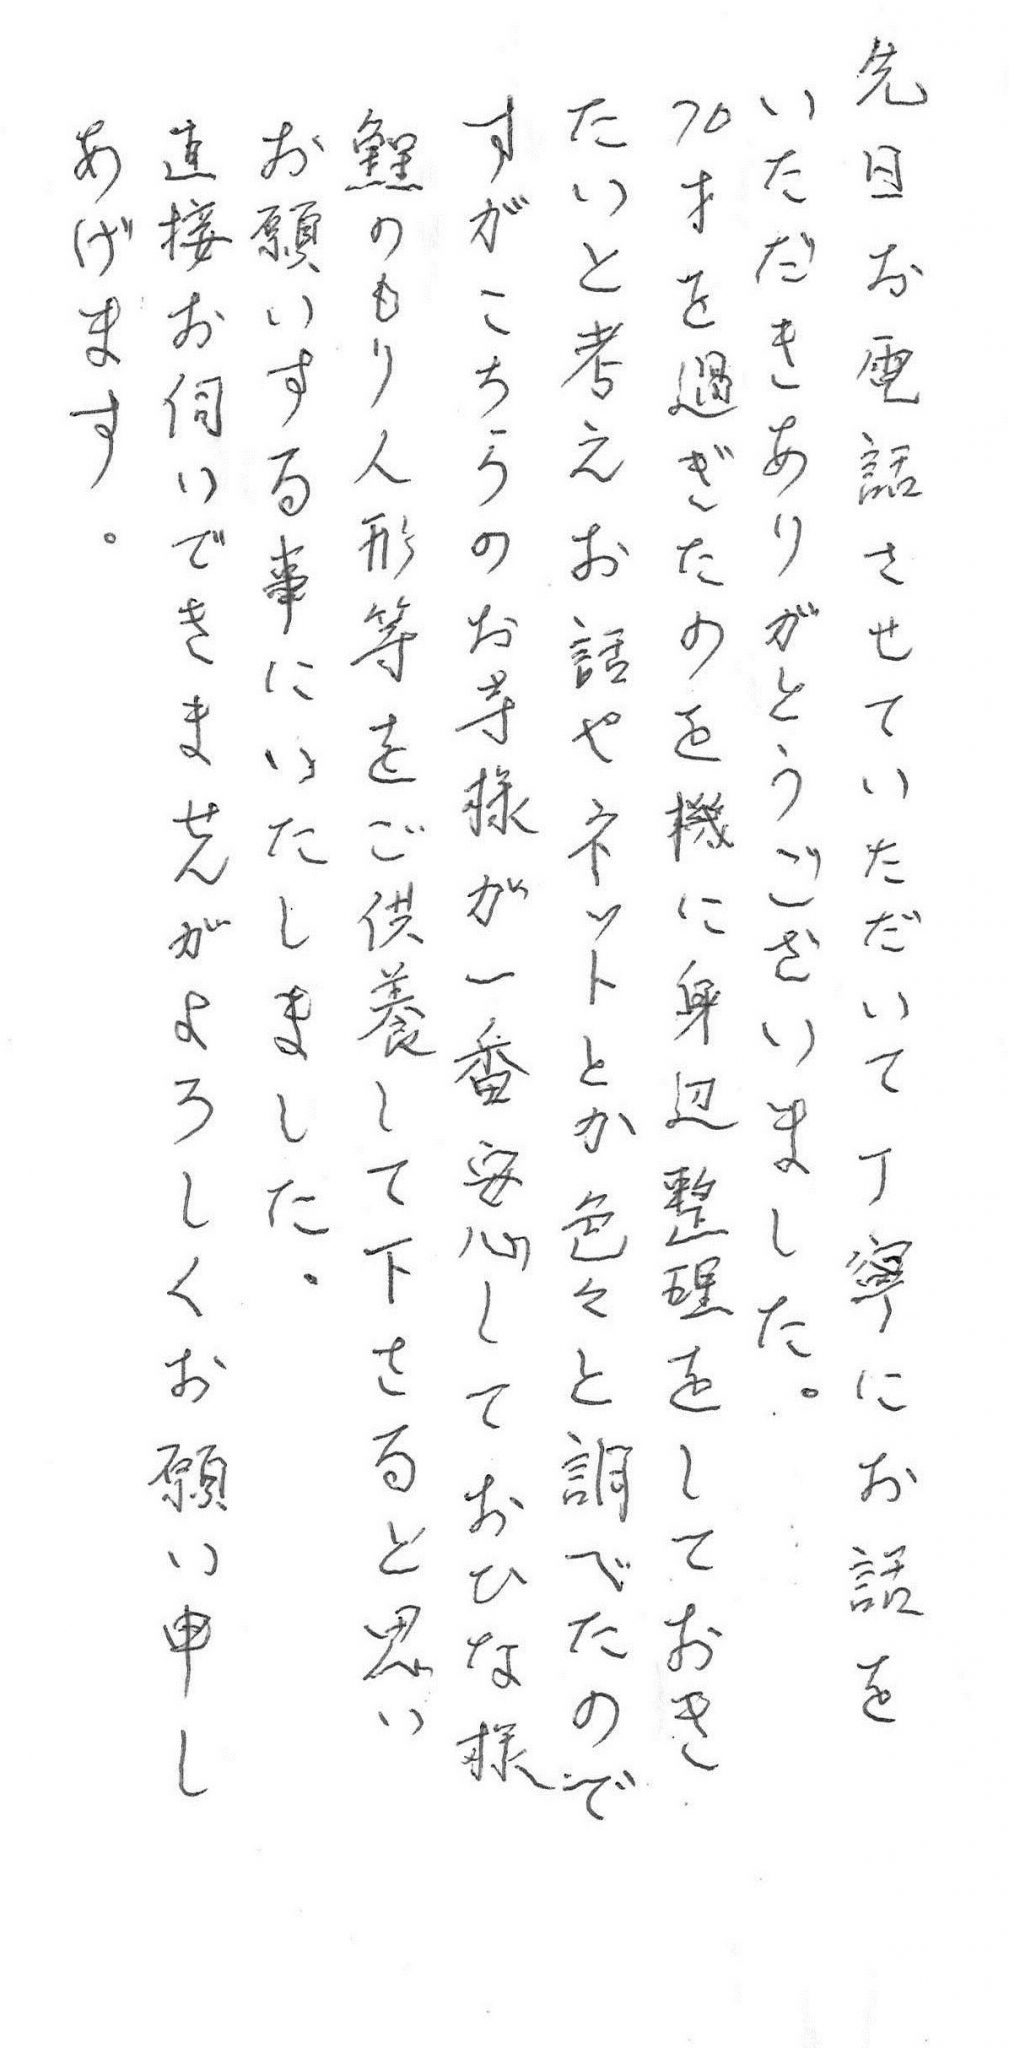 先日お電話させていただいて丁寧にお話を
いただきありがとうございました。
70才を過ぎたのを機に身辺整理をしておき
たいと考えお話やネットとか色々と調べたので
すがこちらのお寺様が一番安心しておひな様
鯉のもり人形等をご供養して下さると思い
お願いする事にいたしました。
直接お伺いできませんがよろしくお願い申し
あげます。